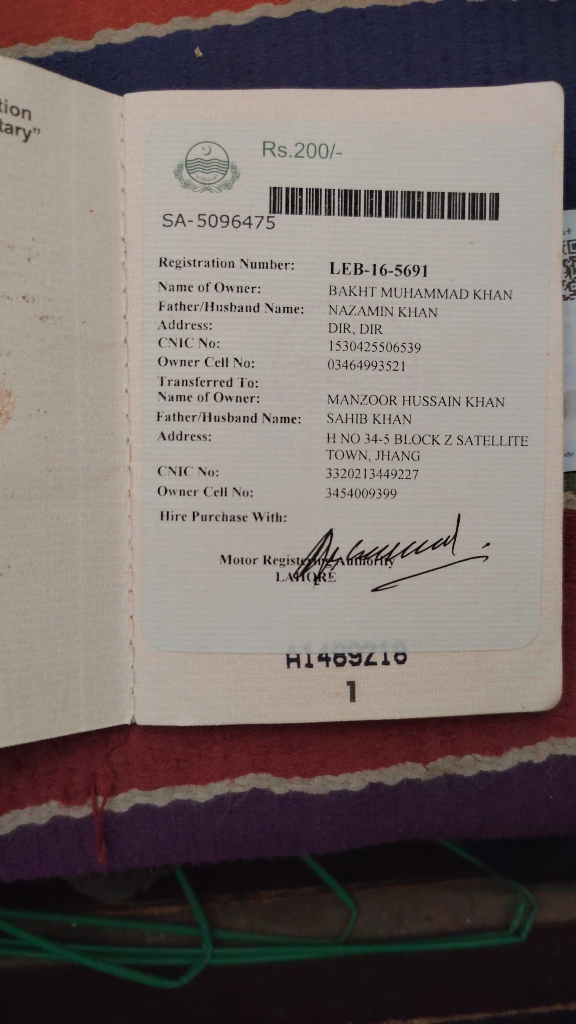 tion
tary”
Rs.200/-
SA-5096475
Registration Number: LEB-16-5691
Name of Owner: BAKHT MUHAMMAD KHAN
Father/Husband Name: NAZAMIN KHAN
Address: DIR, DIR
CNIC No: 1530425506539
Owner Cell No: 03464993521
Transferred To:
Name of Owner: MANZOOR HUSSAIN KHAN
Father/Husband Name: SAHIB KHAN
Address: H NO 34-5 BLOCK Z SATELLITE
TOWN, JHANG
CNIC No: 3320213449227
Owner Cell No: 3454009399
Hire Purchase With:
Motor Registering Authority
LAHORE
A1489218
1